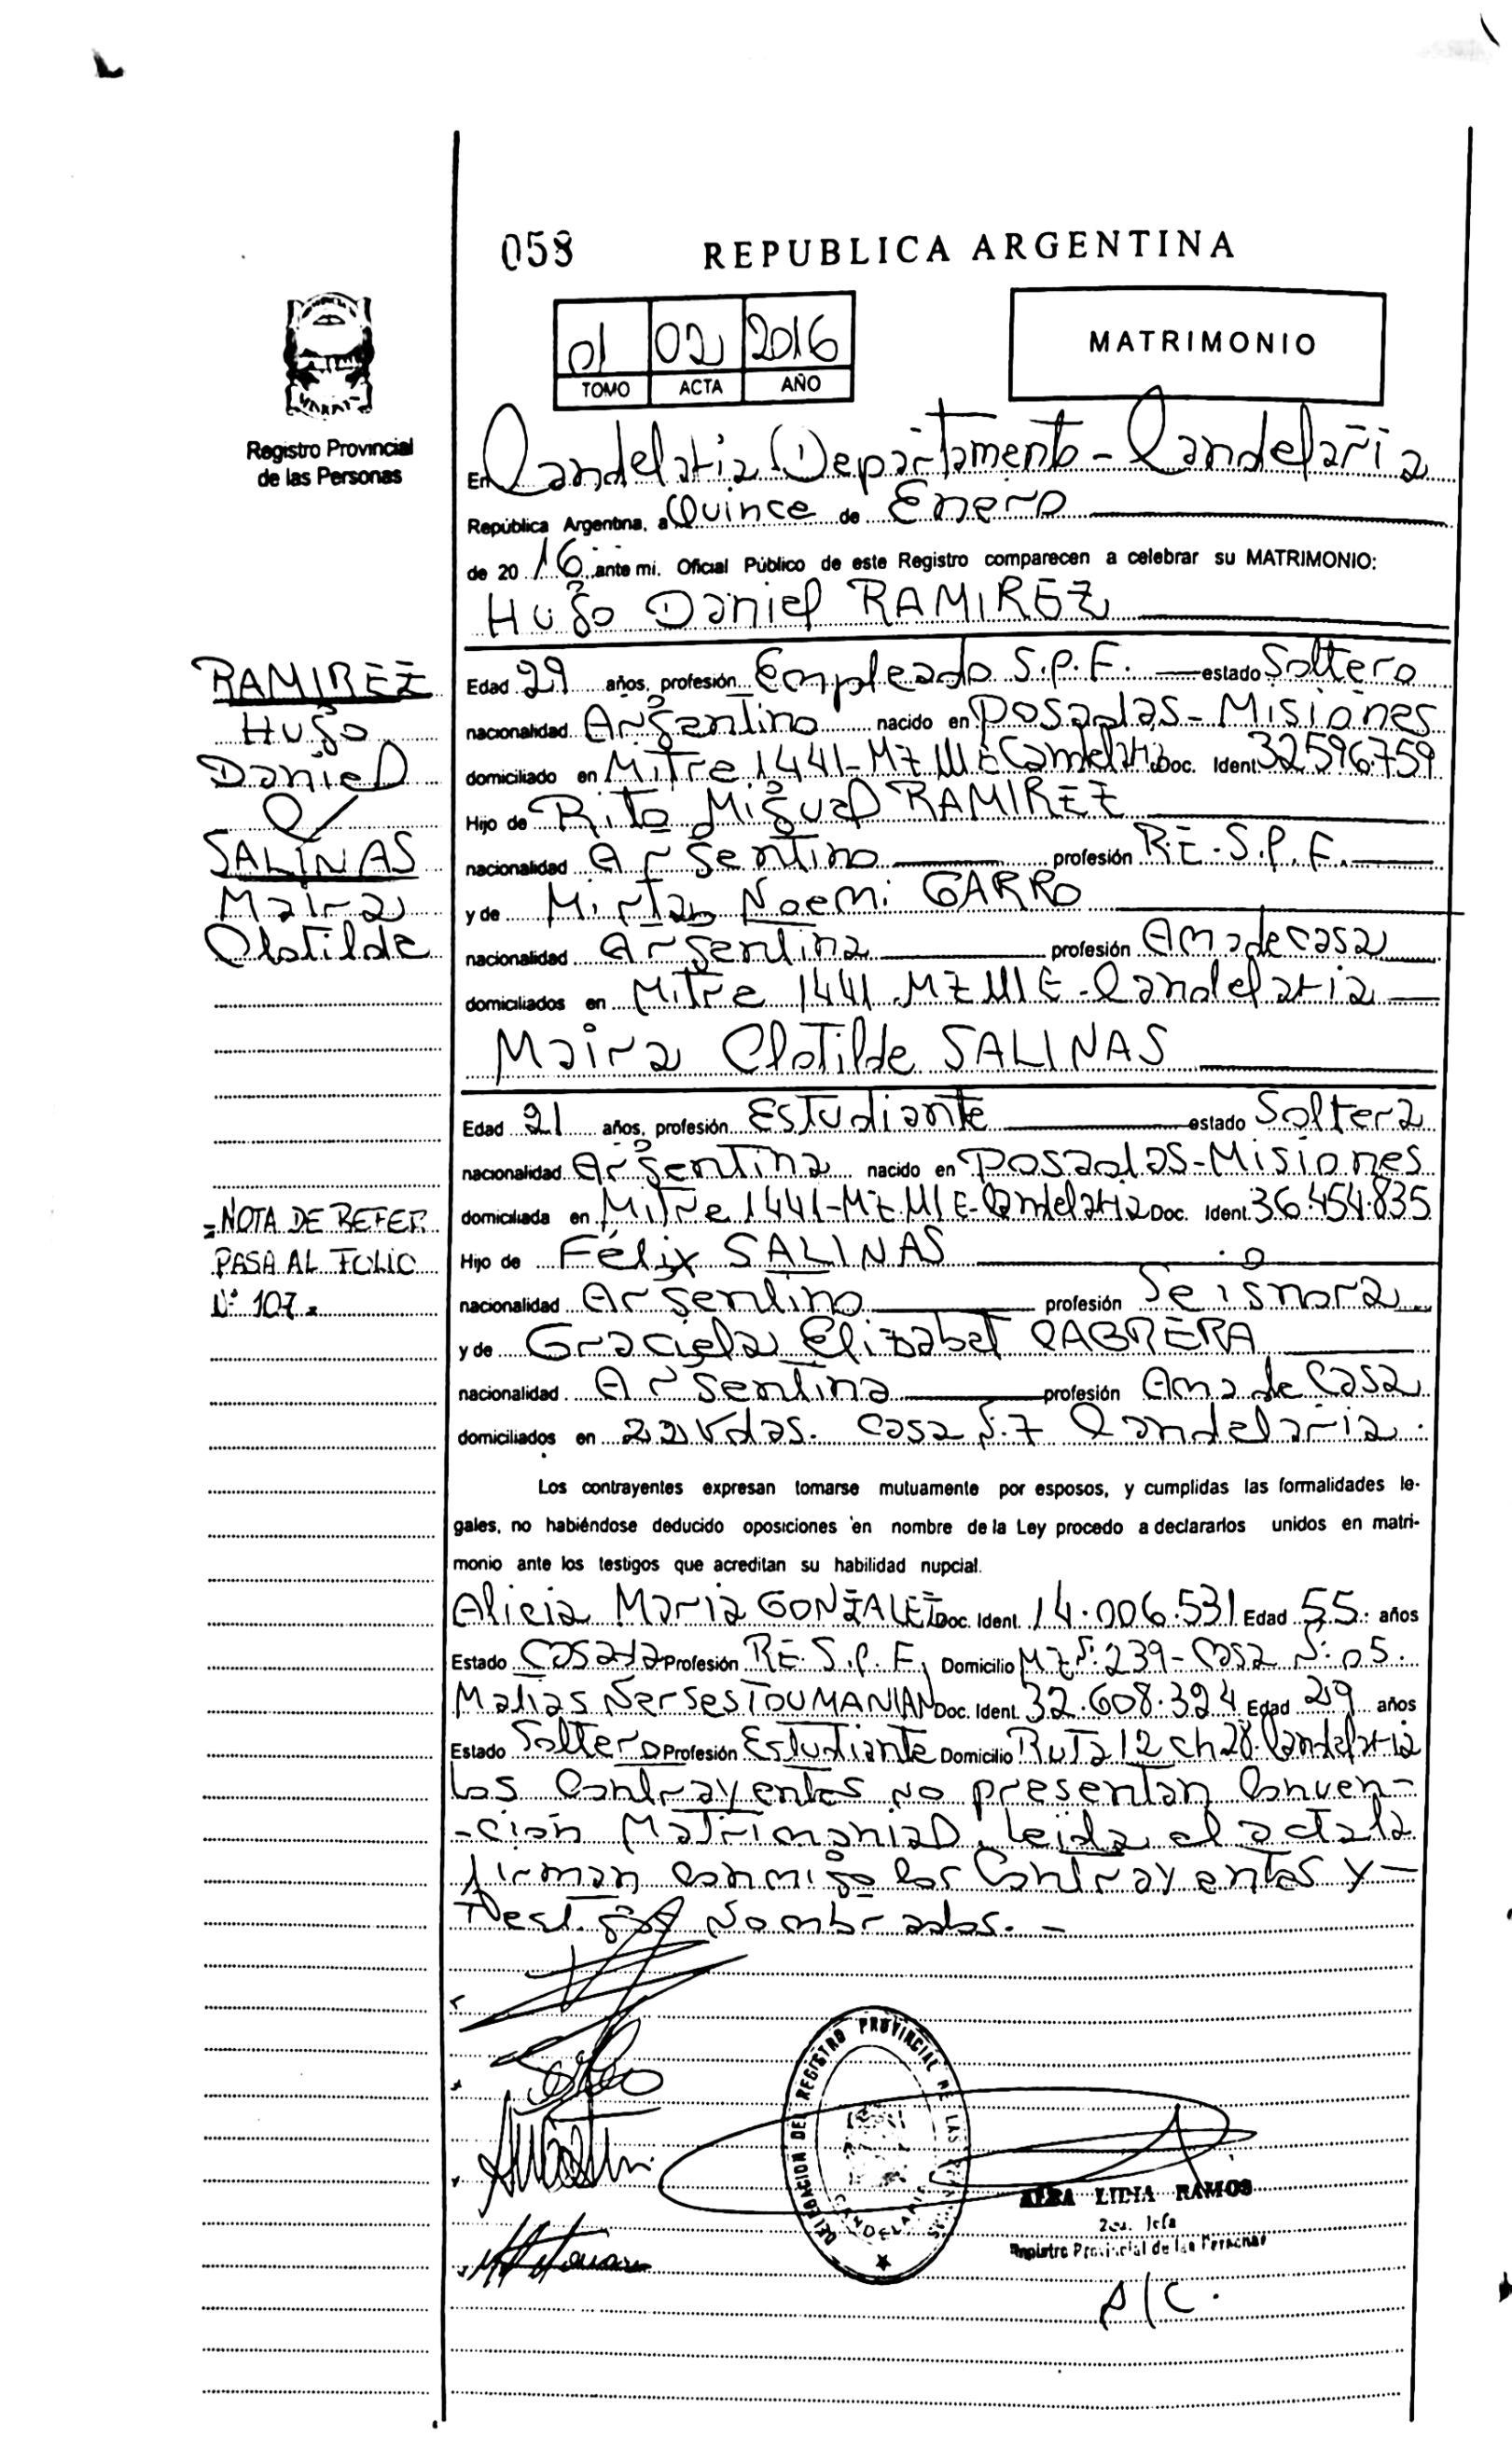 058
REPUBLICA ARGENTINA
01 02 2016
TOMO ACTA AÑO
MATRIMONIO
Registro Provincial
de las Personas
En Candelaria Departamento - Candelaria
República Argentina, a Quince de Enero
de 20 16 ante mi. Oficial Público de este Registro comparecen a celebrar su MATRIMONIO:
Hugo Daniel RAMIREZ
RAMIREZ
Hugo
Daniel
SALINAS
Maira
Clotilde
Edad 29 años, profesión Empleado S.P.F. estado Soltero
nacionalidad Argentino nacido en Posadas - Misiones
domiciliado en Mitre 1441 - Mz Candelaria Doc. Ident. 32596759
Hijo de Rito Miguel RAMIREZ
nacionalidad Argentino profesión RE. S.P.F.
y de Mirta Noemi GARRO
nacionalidad Argentina profesión Ama de casa
domiciliados en Mitre 1441 MZ - Candelaria
Maira Clotilde SALINAS
Edad 21 años, profesión Estudiante estado Soltera
nacionalidad Argentina nacido en Posadas - Misiones
domiciliada en Mitre 1441 - Mz - Candelaria Doc. Ident. 36.454.835
Hijo de Félix SALINAS
nacionalidad Argentino profesión Se ignora
y de Graciela Elizabet CABRERA
nacionalidad Argentina profesión Ama de Casa
domiciliados en 22 Vdas. Casa N° 7 Candelaria.
= NOTA DE REFER.
PASA AL FOLIO
N° 107 =
Los contrayentes expresan tomarse mutuamente por esposos, y cumplidas las formalidades le-
gales, no habiéndose deducido oposiciones en nombre de la Ley procedo a declararlos unidos en matri-
monio ante los testigos que acreditan su habilidad nupcial.
Alicia Maria GONZALEZ Doc. Ident. 14.006.531 Edad 55 años
Estado Casada Profesión RE. S.P.F. Domicilio Mz N° 239 - Casa N° 05.
Matias Nerses TOUMANIAN Doc. Ident. 32.608.324 Edad 29 años
Estado Soltero Profesión Estudiante Domicilio Ruta 12 Ch 28. Candelaria
Los Contrayentes no presentan Conven-
-ción Matrimonial. Leida el acta la
firman conmigo los Contrayentes y -
Testigos Nombrados. -
DELEGACION DEL REGISTRO PROVINCIAL DE LAS
CANDELARIA
ALBA LIDIA RAMOS
2da. Jefa
Registro Provincial de las Personas
A/C.